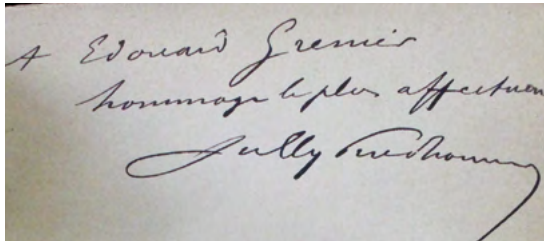 A Edouard Grenier
hommage le plus affectueux
Sully Prudhomme